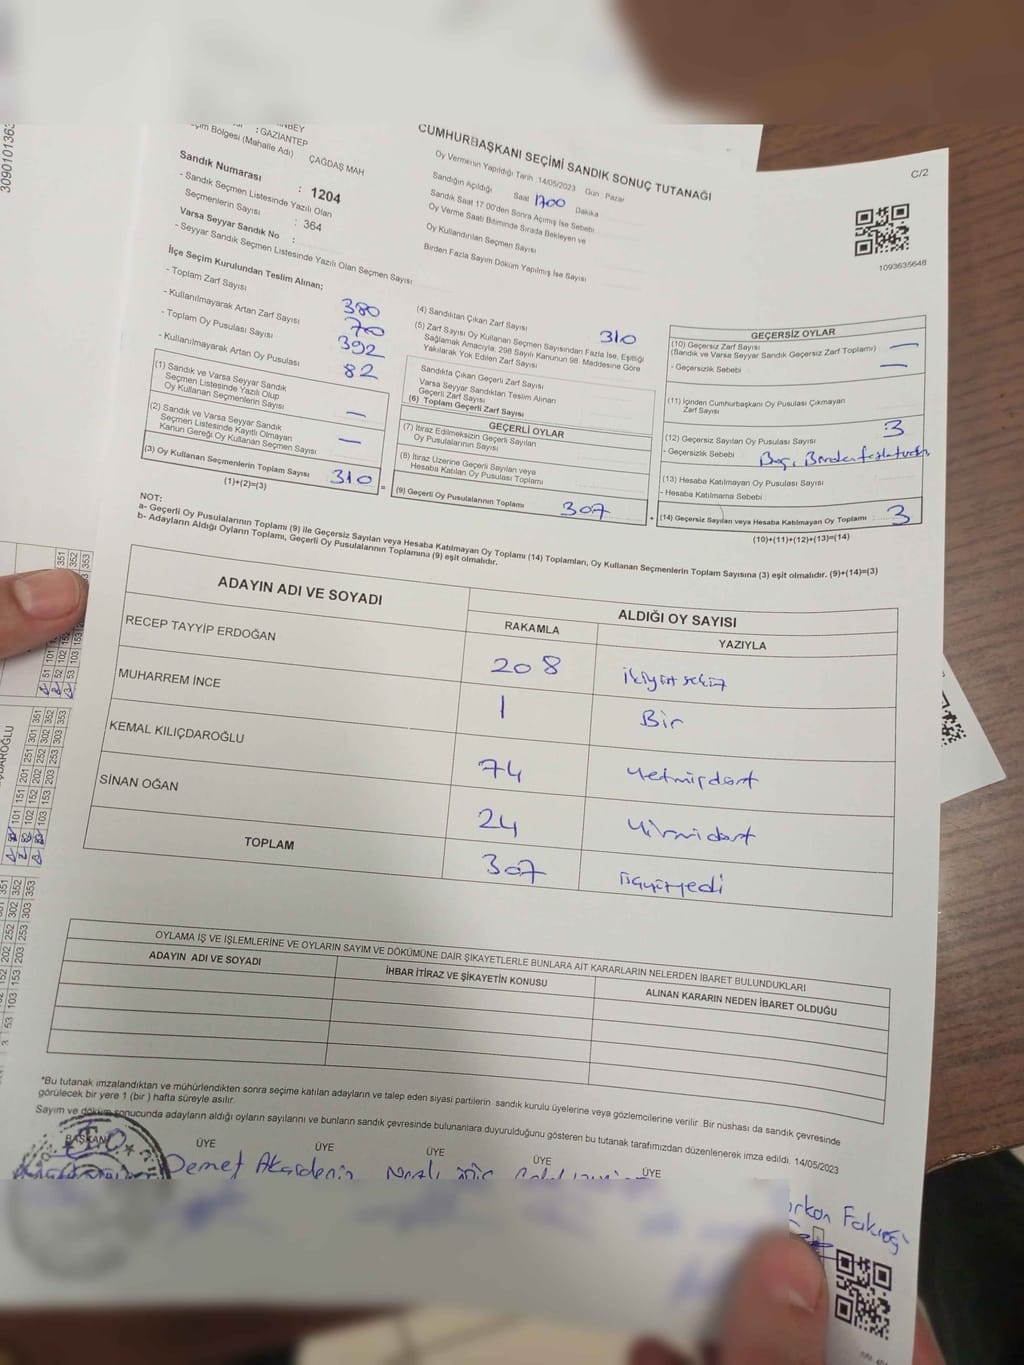 3090101363
: GAZİANTEP
Bölgesi (Mahalle Adı)
ÇAĞDAŞ MAH
Sandık Numarası : 1204
- Sandık Seçmen Listesinde Yazılı Olan
Seçmenlerin Sayısı : 364
Varsa Seyyar Sandık No :
- Seyyar Sandık Seçmen Listesinde Yazılı Olan Seçmen Sayısı
CUMHURBAŞKANI SEÇİMİ SANDIK SONUÇ TUTANAĞI
C/2
Oy Vermenin Yapıldığı Tarih 14/05/2023 Gün Pazar
Sandığın Açıldığı Saat 1700 Dakika
Sandık Saat 17:00'den Sonra Açılmış İse Sebebi
Oy Verme Saati Bitiminde Sırada Bekleyen ve
Oy Kullandırılan Seçmen Sayısı
Birden Fazla Sayım Döküm Yapılmış İse Sayısı
1093635648
İlçe Seçim Kurulundan Teslim Alınan;
- Toplam Zarf Sayısı 380
- Kullanılmayarak Artan Zarf Sayısı 70
- Toplam Oy Pusulası Sayısı 392
- Kullanılmayarak Artan Oy Pusulası 82
(1) Sandık ve Varsa Seyyar Sandık
Seçmen Listesinde Yazılı Olup
Oy Kullanan Seçmenlerin Sayısı —
(2) Sandık ve Varsa Seyyar Sandık
Seçmen Listesinde Kayıtlı Olmayan
Kanun Gereği Oy Kullanan Seçmen Sayısı —
(3) Oy Kullanan Seçmenlerin Toplam Sayısı 310
(1)+(2)=(3)
=
(4) Sandıktan Çıkan Zarf Sayısı 310
(5) Zarf Sayısı Oy Kullanan Seçmen Sayısından Fazla İse, Eşitliği
Sağlamak Amacıyla, 298 Sayılı Kanunun 98. Maddesine Göre
Yakılarak Yok Edilen Zarf Sayısı
Sandıkta Çıkan Geçerli Zarf Sayısı
Varsa Seyyar Sandıktan Teslim Alınan
Geçerli Zarf Sayısı
(6) Toplam Geçerli Zarf Sayısı
GEÇERLİ OYLAR
(7) İtiraz Edilmeksizin Geçerli Sayılan
Oy Pusulalarının Sayısı
(8) İtiraz Üzerine Geçerli Sayılan veya
Hesaba Katılan Oy Pusulası Toplamı
(9) Geçerli Oy Pusulalarının Toplamı 307
+
GEÇERSİZ OYLAR
(10) Geçersiz Zarf Sayısı
(Sandık ve Varsa Seyyar Sandık Geçersiz Zarf Toplamı) —
- Geçersizlik Sebebi —
(11) İçinden Cumhurbaşkanı Oy Pusulası Çıkmayan
Zarf Sayısı
(12) Geçersiz Sayılan Oy Pusulası Sayısı 3
- Geçersizlik Sebebi
(13) Hesaba Katılmayan Oy Pusulası Sayısı
- Hesaba Katılmama Sebebi
(14) Geçersiz Sayılan veya Hesaba Katılmayan Oy Toplamı : 3
(10)+(11)+(12)+(13)=(14)
NOT:
a- Geçerli Oy Pusulalarının Toplamı (9) ile Geçersiz Sayılan veya Hesaba Katılmayan Oy Toplamı (14) Toplamları, Oy Kullanan Seçmenlerin Toplam Sayısına (3) eşit olmalıdır. (9)+(14)=(3)
b- Adayların Aldığı Oyların Toplamı, Geçerli Oy Pusulalarının Toplamına (9) eşit olmalıdır.
ADAYIN ADI VE SOYADI
ALDIĞI OY SAYISI
RAKAMLA YAZIYLA
RECEP TAYYİP ERDOĞAN 208 İkiyüzsekiz
MUHARREM İNCE 1 Bir
KEMAL KILIÇDAROĞLU 74 Yetmişdört
SİNAN OĞAN 24 Yirmidört
TOPLAM 307 Üçyüzyedi
OYLAMA İŞ VE İŞLEMLERİNE VE OYLARIN SAYIM VE DÖKÜMÜNE DAİR ŞİKAYETLERLE BUNLARA AİT KARARLARIN NELERDEN İBARET BULUNDUKLARI
ADAYIN ADI VE SOYADI
İHBAR İTİRAZ VE ŞİKAYETİN KONUSU
ALINAN KARARIN NEDEN İBARET OLDUĞU
*Bu tutanak imzalandıktan ve mühürlendikten sonra seçime katılan adayların ve talep eden siyasi partilerin sandık kurulu üyelerine veya gözlemcilerine verilir. Bir nüshası da sandık çevresinde
görülecek bir yere 1 (bir) hafta süreyle asılır.
Sayım ve döküm sonucunda adayların aldığı oyların sayılarını ve bunların sandık çevresinde bulunanlara duyurulduğunu gösteren bu tutanak tarafımızdan düzenlenerek imza edildi. 14/05/2023
BAŞKAN ÜYE ÜYE ÜYE ÜYE ÜYE
Demet Akardeniz